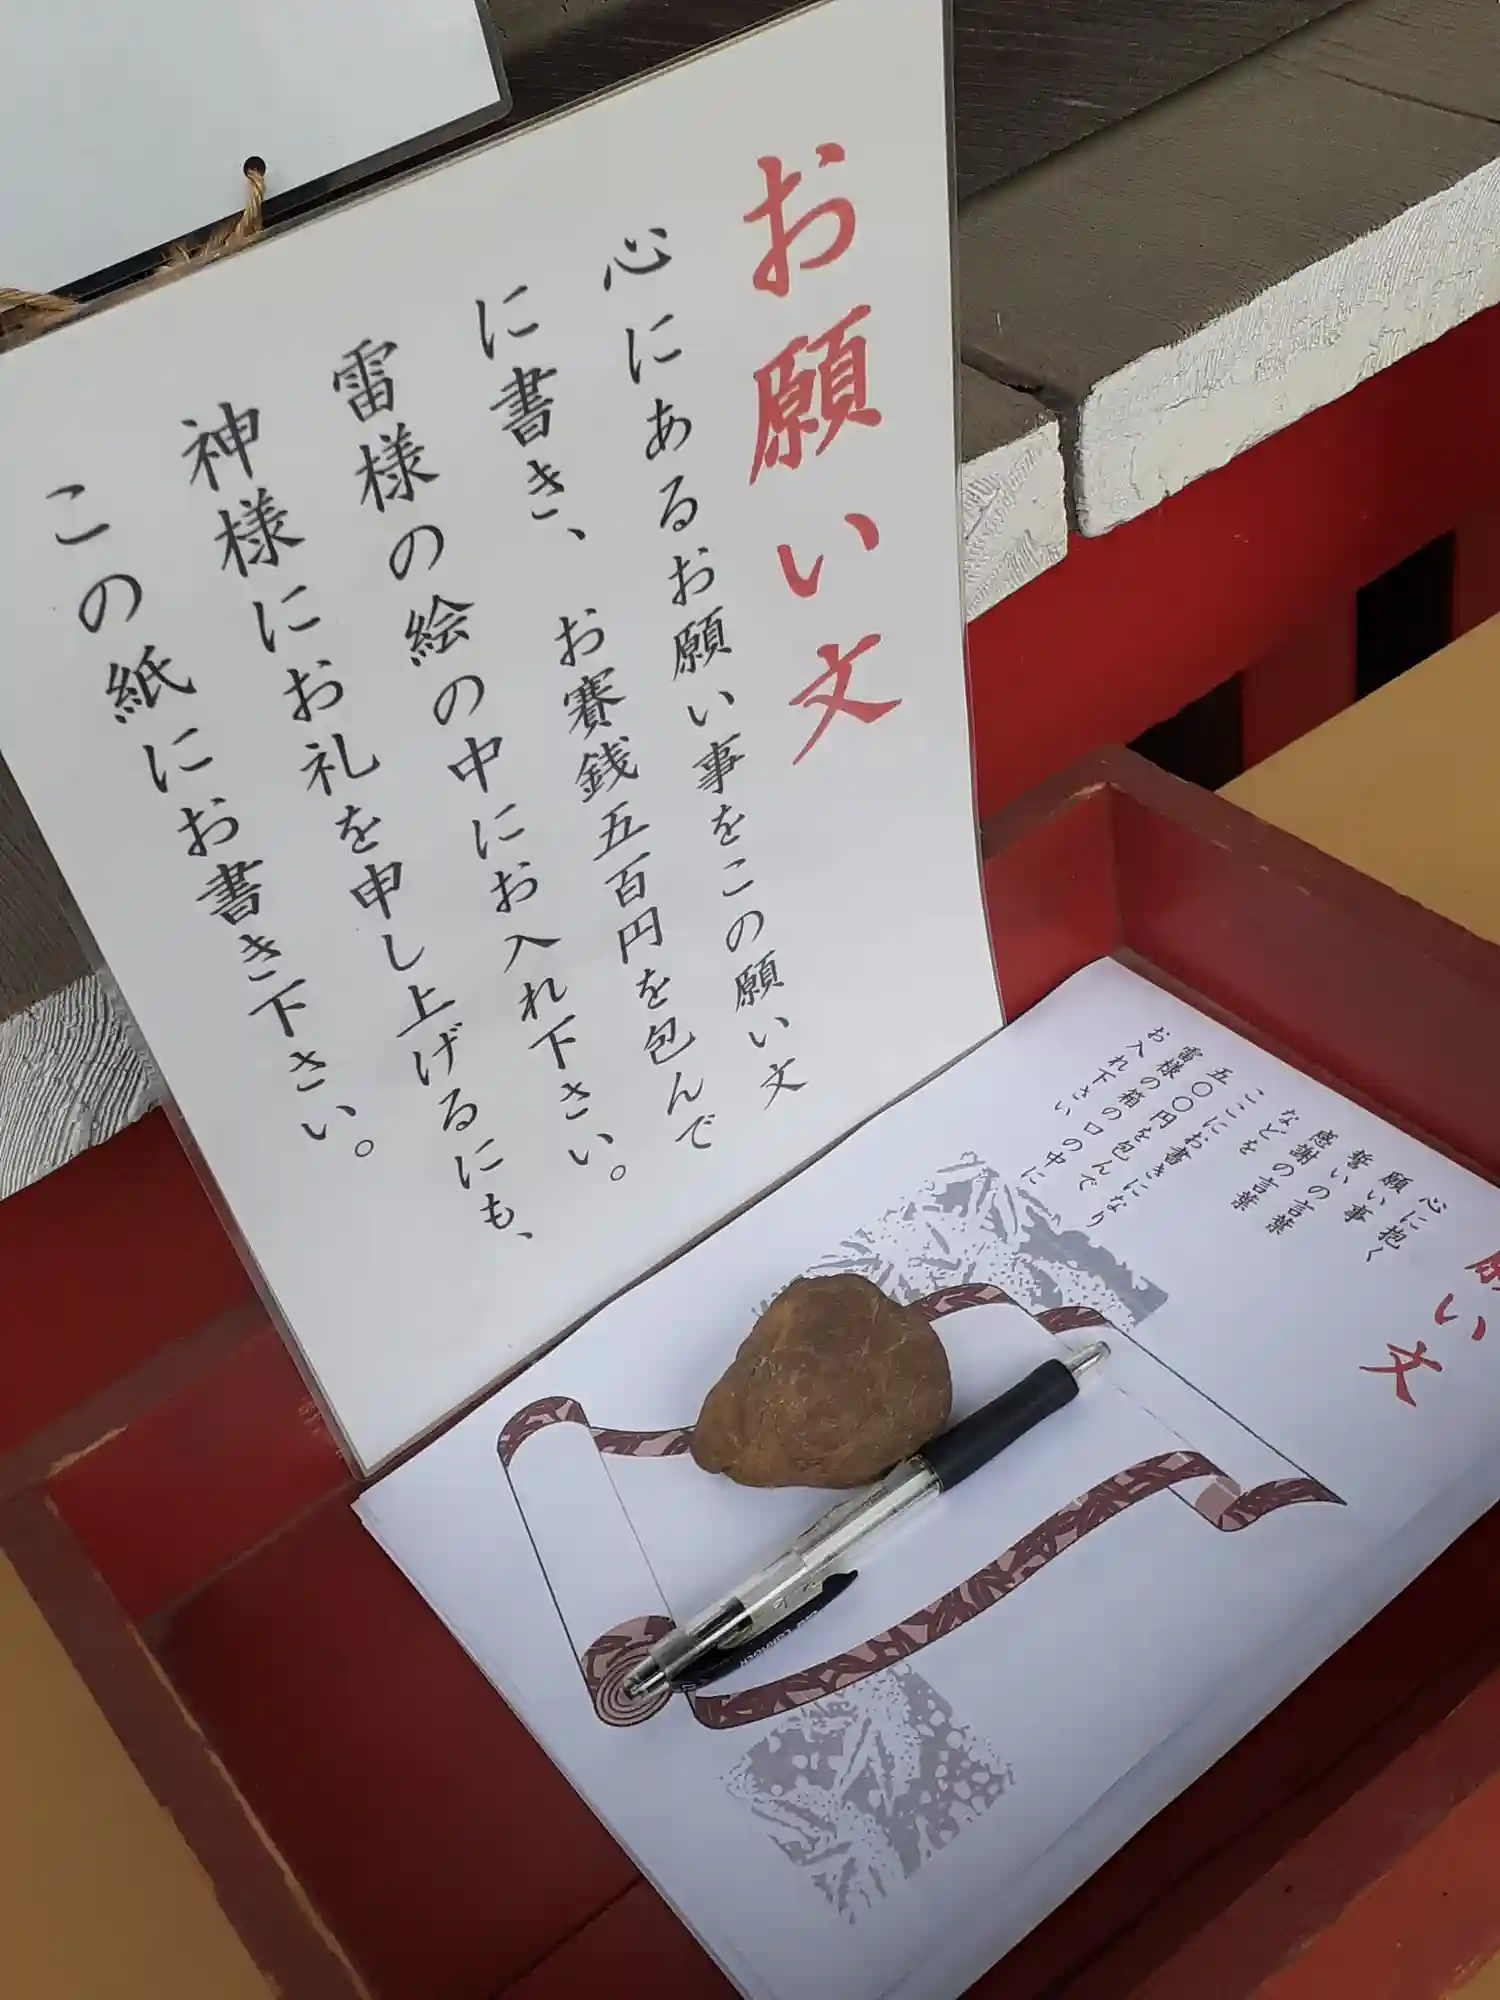 お願い文
心にあるお願い事をこの願い文
に書き、お賽銭五百円を包んで
雷様の絵の中にお入れ下さい。
神様にお礼を申し上げるにも、
この紙にお書き下さい。
願い文
心に抱く
願い事
誓いの言葉
感謝の言葉
などを
ここにお書きになり
五〇〇円を包んで
雷様の箱の口の中に
お入れ下さい